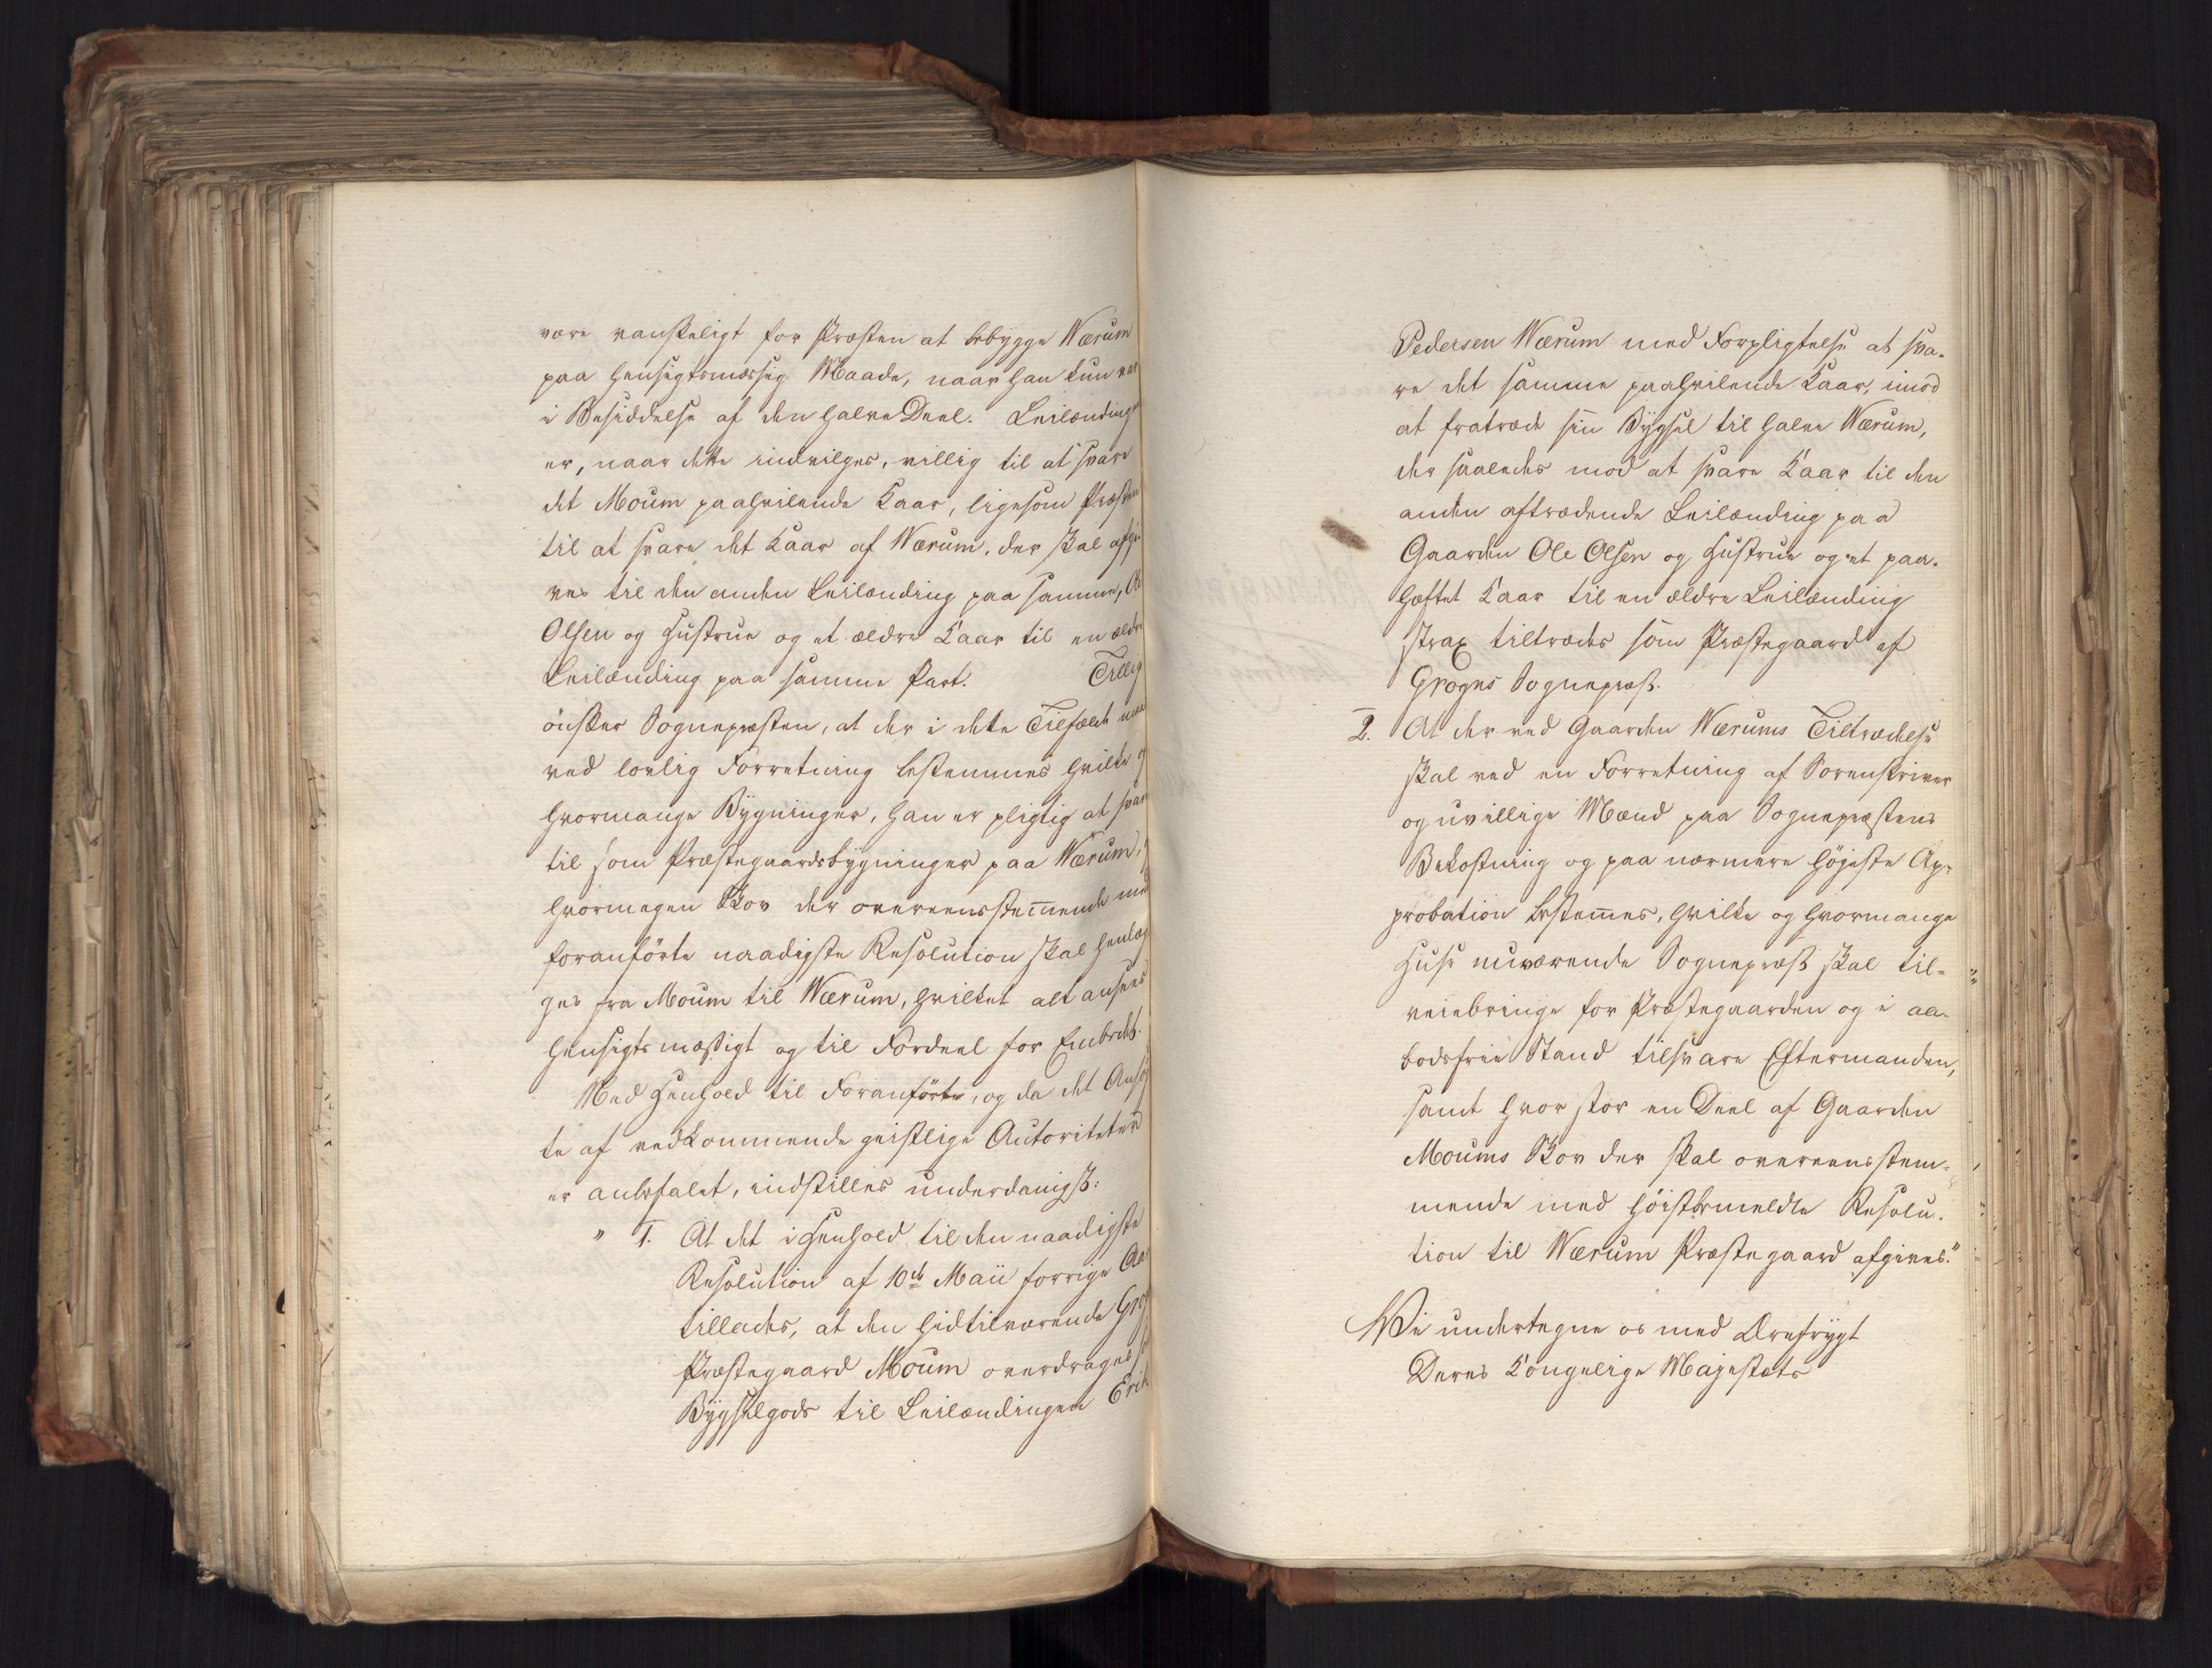 være vanskeligt for Præsten at bebygge Wærum
paa hensigtsmæssig Maade, naar han kun var
i Besiddelse af den halve Deel. Leilændingen
er, naar dette indvilges, villig til at svare
det Moum paahvilende Kaar, ligesom Præsten
til at svare det Kaar af Wærum, der skal afgi-
ves til den anden Leilænding paa samme, Ole
Olsen og Hustrue og et ældre Kaar til en ældre
Leilænding paa samme Part. Tillig
önsker Sognepræsten, at der i dette Tilfælde maa
ved lovlig Forretning bestemmes hvilke og
hvormange Bygninger, han er pligtig at svare
til som Præstegaardsbygninger paa Wærum,
hvormegen Skov der overeensstem̅ende med
foranförte naadigste Resolution skal henlæg-
ges fra Moum til Wærum, hvilket alt ansees
hensigtsmæssigt og til Fordeel for Embedet.
Med Henhold til Foranförte, og da det Ansög-
te af vedkommende geistlige Autoriteter
er anbefalet, indstilles underdanigst:
" 1. At det i Henhold til den naadigste
Resolution af 10de Maii forrige Aar
tillades, at den hidtilværende Grog
Præstegaard Moum overdrages so
Bygselgods til Leilændingen Erik
Pedersen Wærum med Forpligtelse at sva-
re det samme paahvilende Kaar, imod
at fratræde sin Bygsel til halve Wærum,
der saaledes mod at svare Kaar til den
anden aftrædende Leilænding paa
Gaarden Ole Olsen og Hustrue og et paa-
hæftet Kaar til en ældre Leilænding
strax tiltrædes som Præstegaard af
Grognes Sognepræst.
2. At der ved Gaarden Wærums Tiltrædelse
skal ved en Forretning af Sorenskriver
og uvillige Mænd paa Sognepræstens
Bekostning og paa nærmere höjeste Ap-
probation bestem̅es, hvilke og hvormange
Huse nuværende Sognepræst skal til-
veiebringe for Præstegaarden og i aa-
bodsfrie Stand tilsvare Eftermanden,
samt hvor stor en Deel af Gaarden
Moums Skov der skal overeensstem-
mende med höistbemeldte Resolu-
tion til Wærum Præstegaard afgives."
Vi undertegne os med Ærefrygt
Deres Kongelige Majestæts